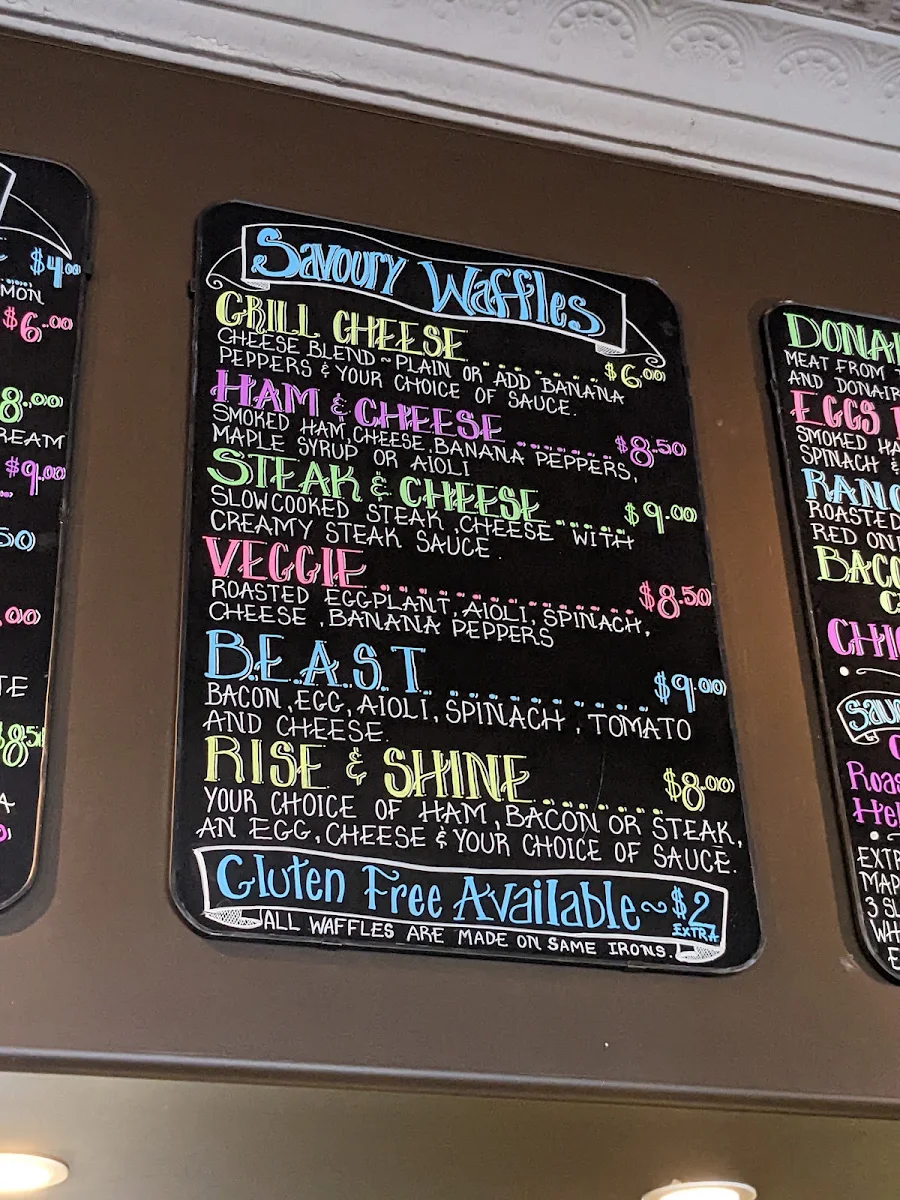 $4.00
MON
$6.00
8.00
REAM
$9.00
50
.00
TE
$8.5
A
Savoury Waffles
GRILL CHEESE ........ $6.00
CHEESE BLEND ~ PLAIN OR ADD BANANA
PEPPERS & YOUR CHOICE OF SAUCE.
HAM & CHEESE ...... $8.50
SMOKED HAM, CHEESE, BANANA PEPPERS,
MAPLE SYRUP OR AIOLI
STEAK & CHEESE ..... $9.00
SLOWCOOKED STEAK, CHEESE WITH
CREAMY STEAK SAUCE.
VEGGIE ............... $8.50
ROASTED EGGPLANT, AIOLI, SPINACH,
CHEESE, BANANA PEPPERS
B.E.A.S.T. ........... $9.00
BACON, EGG, AIOLI, SPINACH, TOMATO
AND CHEESE.
RISE & SHINE ....... $8.00
YOUR CHOICE OF HAM, BACON OR STEAK,
AN EGG, CHEESE & YOUR CHOICE OF SAUCE.
Gluten Free Available ~ $2
EXTRA
ALL WAFFLES ARE MADE ON SAME IRONS.
DONA
MEAT FROM
AND DONAIR
EGGS
SMOKED HA
SPINACH &
RANC
ROASTED
RED ON
BACO
C
CHIC
Sau
Roas
Hel
EXTR
MAP
3 SL
WH
E